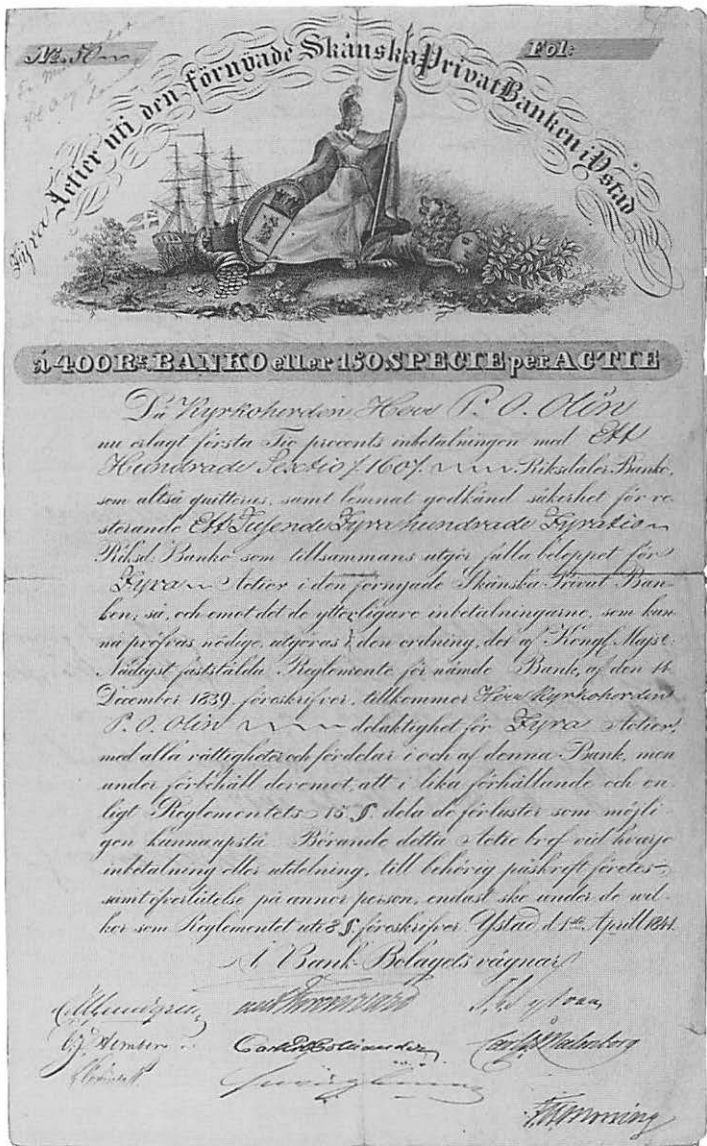 No. 50
Fol:
Fyra Actier uti den förnyade Skånska Privat Banken i Ystad
à 400 Rd. BANKO eller 150 SPECIE per ACTIE
Då Kyrkoherden Herr P. O. Olin
nu erlagt första Tio procents inbetalningen med Ett
Hundrade Sextio /160/. Riksdaler Banko,
som altså quitteras, samt lemnat godkänd säkerhet för re-
sterande Ett Tusende Fyrahundrade Fyratio
Riksd. Banko som tillsammans utgör fulla beloppet för
Fyra Actier i den förnyade Skånska Privat Ban-
ken; så, och emot det de ytterligare inbetalningarne, som kun-
na pröfvas nödige, utgöras i den ordning, det af Kongl. Majst.
Nådigst faststälda Reglemente för nämde Bank, af den 14
December 1839, föreskrifver, tillkommer Herr Kyrkoherden
P. O. Olin delaktighet för Fyra Actier,
med alla rättigheter och fördelar i och af denna Bank, men
under förbehåll deremot, att i lika förhållande och en-
ligt Reglementets 15 §. dela de förluster som möjli-
gen kunna upstå. Börande detta Actie bref vid hvarje
inbetalning eller utdelning, till behörig påskrift företes,
samt öfverlåtelse på annor person, endast ske under de wil-
kor som Reglementet uti 8 §. föreskrifver. Ystad d. 1ste Aprill 1841.
Å Bank-Bolagets vägnar
Carl Malmborg